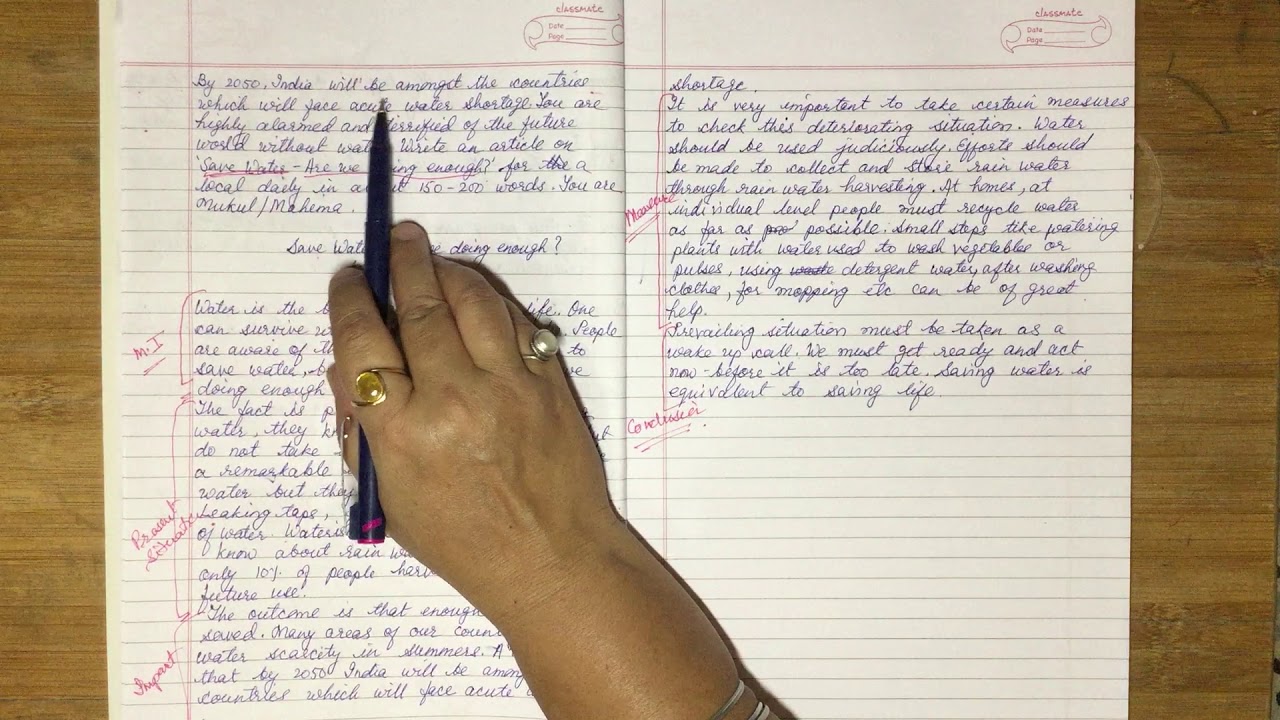 classmate
Date
Page
By 2050, India will be amongst the countries
which will face acute water shortage. You are
highly alarmed and terrified of the future
world without water. Write an article on
'Save Water - Are we doing enough?' for the a
local daily in about 150-200 words. You are
Mukul/Mahema.
Save Water doing enough?
M.I
Water is the life. One
can survive People
are aware of to
save water,
doing enough
Present Situation
The fact is
water, they
do not take
a remarkable
water but they
Leaking taps,
of water.
know about rain
only 10% of people
future use.
Impact
The outcome is that enough
saved. Many areas of our
water scarcity in summers. A
that by 2050 India will be
countries which will face acute
classmate
Date
Page
shortage.
Measure
It is very important to take certain measures
to check this deteriorating situation. Water
should be used judiciously. Efforts should
be made to collect and store rain water
through rain water harvesting. At homes, at
individual level people must recycle water
as far as possible. Small steps like watering
plants with water used to wash vegetables or
pulses, using detergent water, after washing
clothes, for mopping etc can be of great
help.
Conclusion
Prevailing situation must be taken as a
wake up call. We must get ready and act
now - before it is too late. Saving water is
equivalent to saving life.